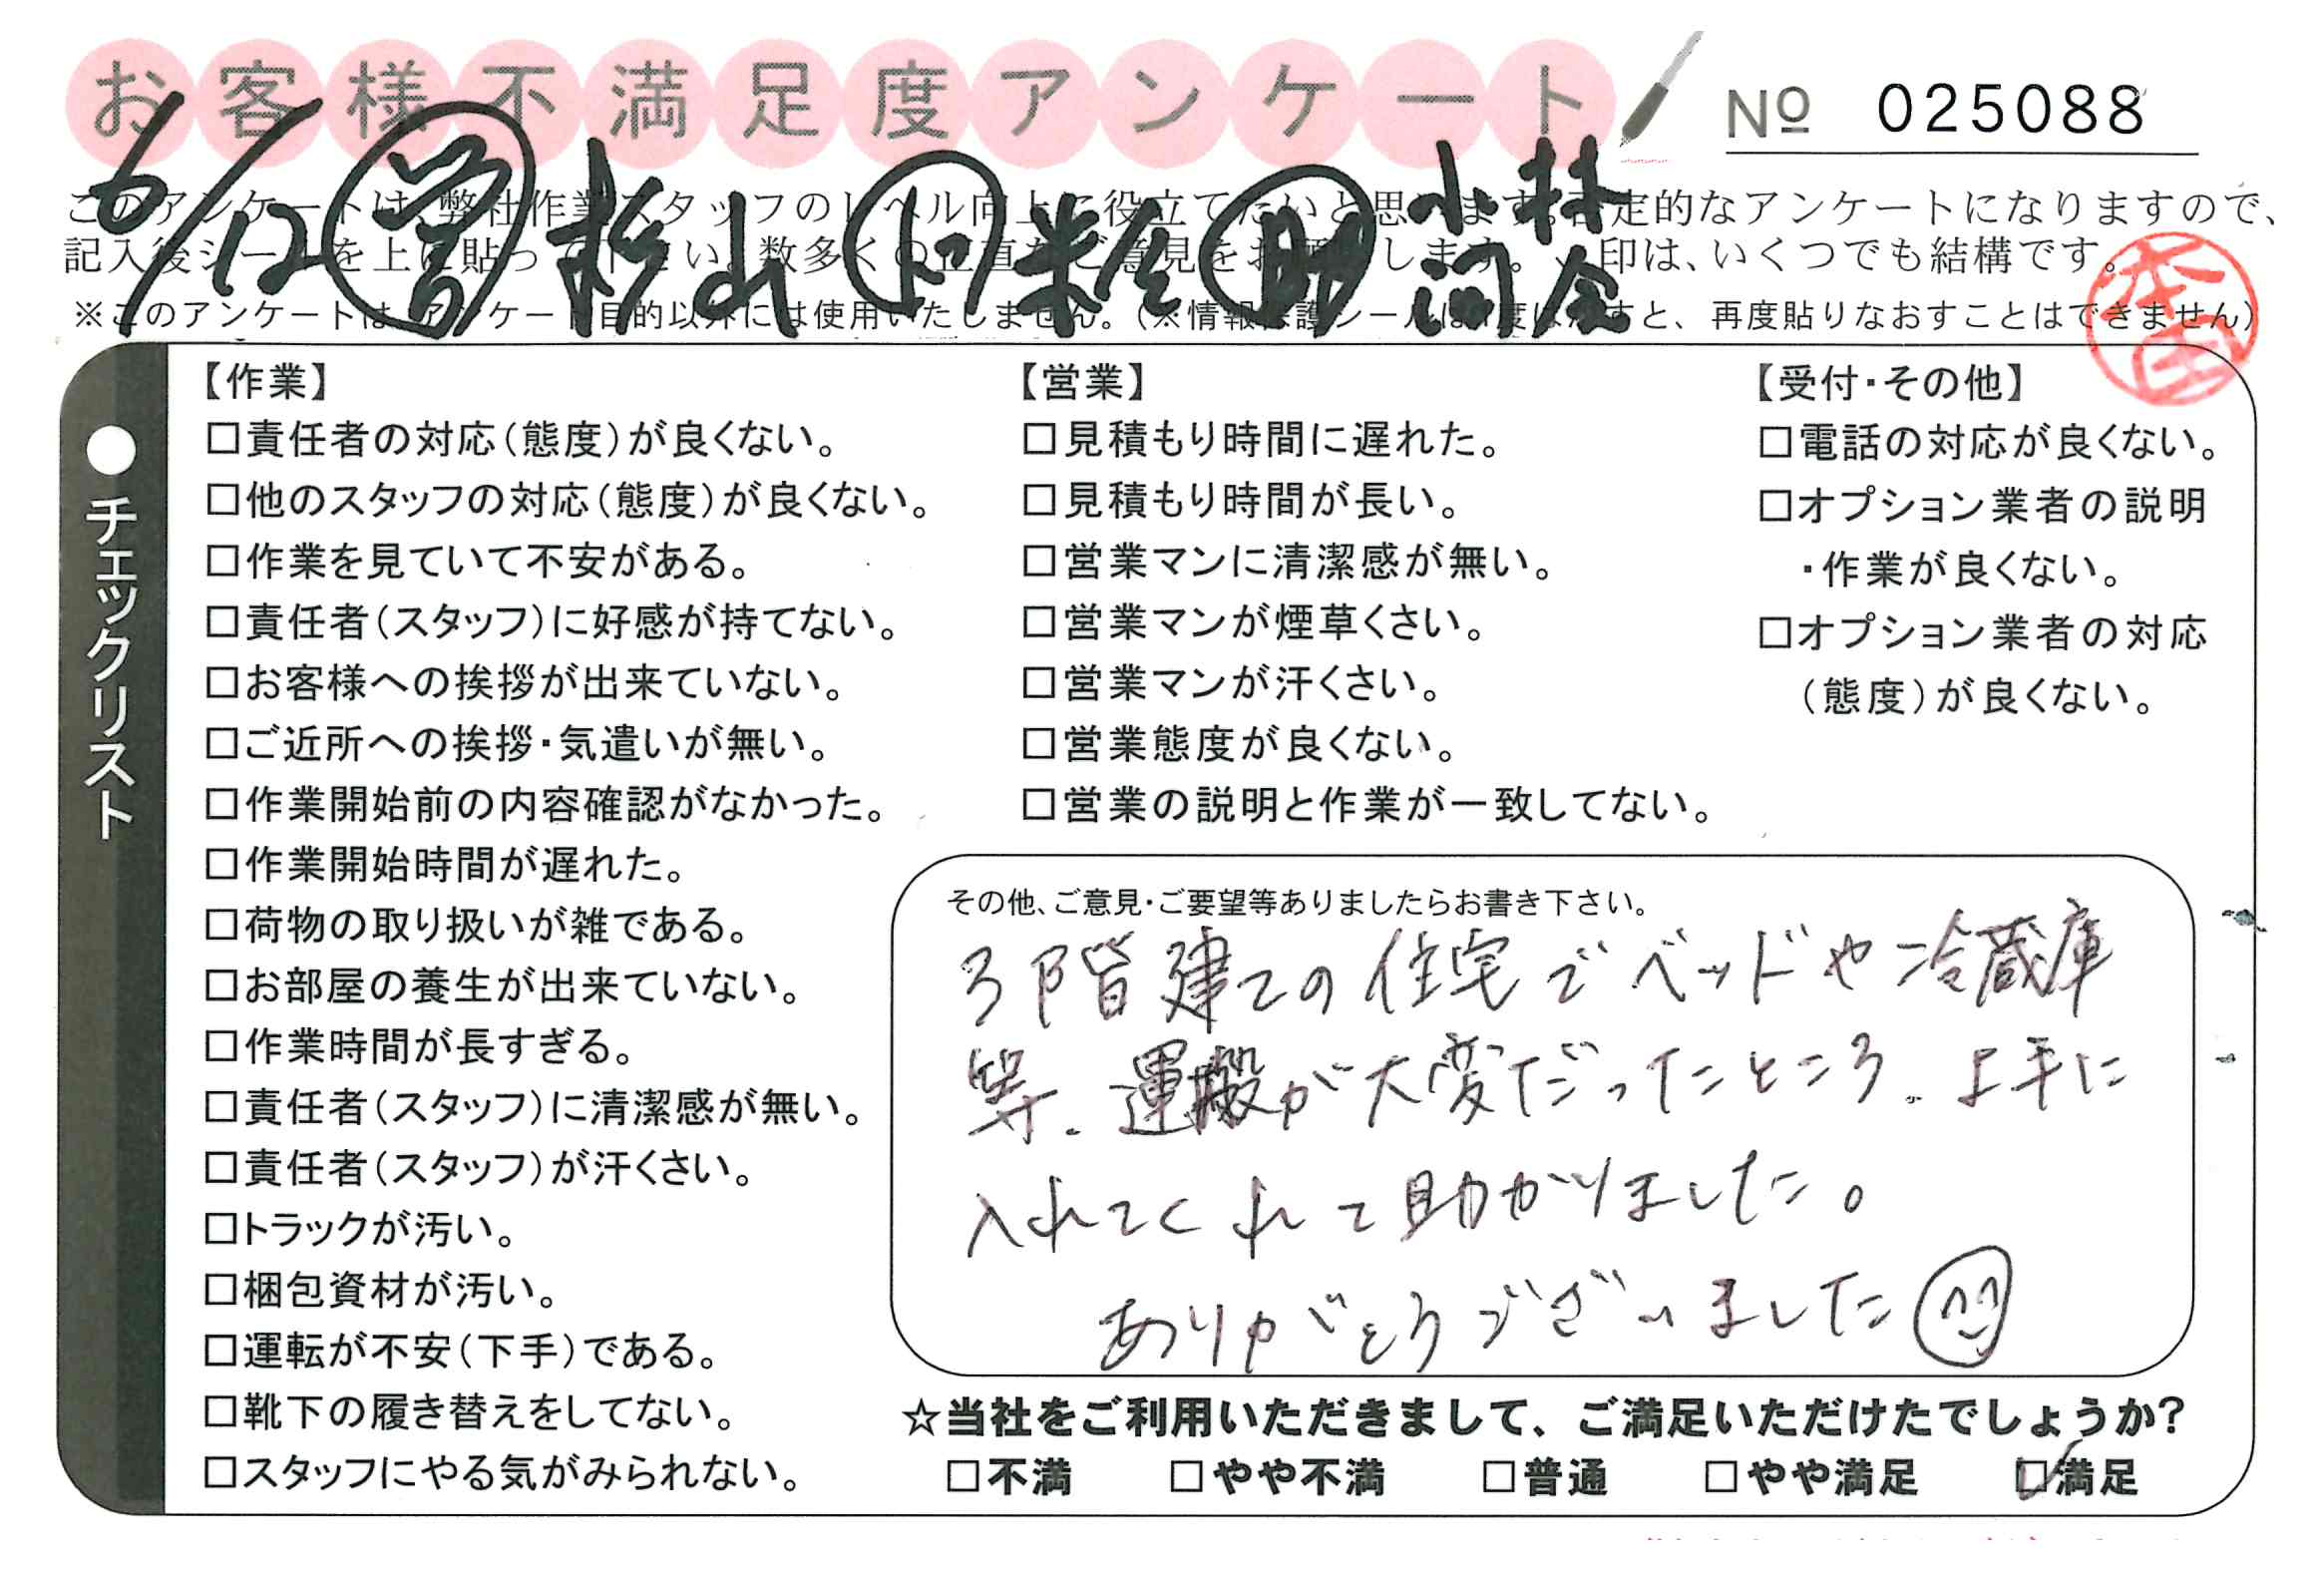 お客様不満足度アンケート
No 025088
6/12 営 杉山 ト 粂 助 小林 河合
このアンケートは、弊社作業スタッフのレベル向上に役立てたいと思います。否定的なアンケートになりますので、
記入後シールを上に貼って下さい。数多くの正直なご意見をお願いします。✓印は、いくつでも結構です。
※このアンケートは、アンケート目的以外には使用いたしません。(※情報保護シールは1度はがすと、再度貼りなおすことはできません)
本田
●チェックリスト
【作業】
□責任者の対応(態度)が良くない。
□他のスタッフの対応(態度)が良くない。
□作業を見ていて不安がある。
□責任者(スタッフ)に好感が持てない。
□お客様への挨拶が出来ていない。
□ご近所への挨拶・気遣いが無い。
□作業開始前の内容確認がなかった。
□作業開始時間が遅れた。
□荷物の取り扱いが雑である。
□お部屋の養生が出来ていない。
□作業時間が長すぎる。
□責任者(スタッフ)に清潔感が無い。
□責任者(スタッフ)が汗くさい。
□トラックが汚い。
□梱包資材が汚い。
□運転が不安(下手)である。
□靴下の履き替えをしてない。
□スタッフにやる気がみられない。
【営業】
□見積もり時間に遅れた。
□見積もり時間が長い。
□営業マンに清潔感が無い。
□営業マンが煙草くさい。
□営業マンが汗くさい。
□営業態度が良くない。
□営業の説明と作業が一致してない。
【受付・その他】
□電話の対応が良くない。
□オプション業者の説明
・作業が良くない。
□オプション業者の対応
(態度)が良くない。
その他、ご意見・ご要望等ありましたらお書き下さい。
3階建ての住宅でベッドや冷蔵庫
等、運搬が大変だったところ、上手に
入れてくれて助かりました。
ありがとうございました
☆当社をご利用いただきまして、ご満足いただけたでしょうか?
□不満 □やや不満 □普通 □やや満足 ☑満足